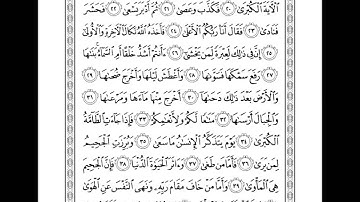 ٱلۡأٓيَةَ ٱلۡكُبۡرَىٰ ٢٠ فَكَذَّبَ وَعَصَىٰ ٢١ ثُمَّ أَدۡبَرَ يَسۡعَىٰ ٢٢ فَحَشَرَ
فَنَادَىٰ ٢٣ فَقَالَ أَنَا۠ رَبُّكُمُ ٱلۡأَعۡلَىٰ ٢٤ فَأَخَذَهُ ٱللَّهُ نَكَالَ ٱلۡأٓخِرَةِ وَٱلۡأُولَىٰٓ
٢٥ إِنَّ فِي ذَٰلِكَ لَعِبۡرَةٗ لِّمَن يَخۡشَىٰٓ ٢٦ ءَأَنتُمۡ أَشَدُّ خَلۡقًا أَمِ ٱلسَّمَآءُۚ بَنَىٰهَا
٢٧ رَفَعَ سَمۡكَهَا فَسَوَّىٰهَا ٢٨ وَأَغۡطَشَ لَيۡلَهَا وَأَخۡرَجَ ضُحَىٰهَا ٢٩
وَٱلۡأَرۡضَ بَعۡدَ ذَٰلِكَ دَحَىٰهَآ ٣٠ أَخۡرَجَ مِنۡهَا مَآءَهَا وَمَرۡعَىٰهَا ٣١
وَٱلۡجِبَالَ أَرۡسَىٰهَا ٣٢ مَتَٰعٗا لَّكُمۡ وَلِأَنۡعَٰمِكُمۡ ٣٣ فَإِذَا جَآءَتِ ٱلطَّآمَّةُ
ٱلۡكُبۡرَىٰ ٣٤ يَوۡمَ يَتَذَكَّرُ ٱلۡإِنسَٰنُ مَا سَعَىٰ ٣٥ وَبُرِّزَتِ ٱلۡجَحِيمُ
لِمَن يَرَىٰ ٣٦ فَأَمَّا مَن طَغَىٰ ٣٧ وَءَاثَرَ ٱلۡحَيَوٰةَ ٱلدُّنۡيَا ٣٨ فَإِنَّ ٱلۡجَحِيمَ
هِيَ ٱلۡمَأۡوَىٰ ٣٩ وَأَمَّا مَنۡ خَافَ مَقَامَ رَبِّهِۦ وَنَهَى ٱلنَّفۡسَ عَنِ ٱلۡهَوَىٰ